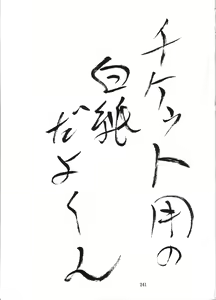 チケット用の
白紙
だよくん
241